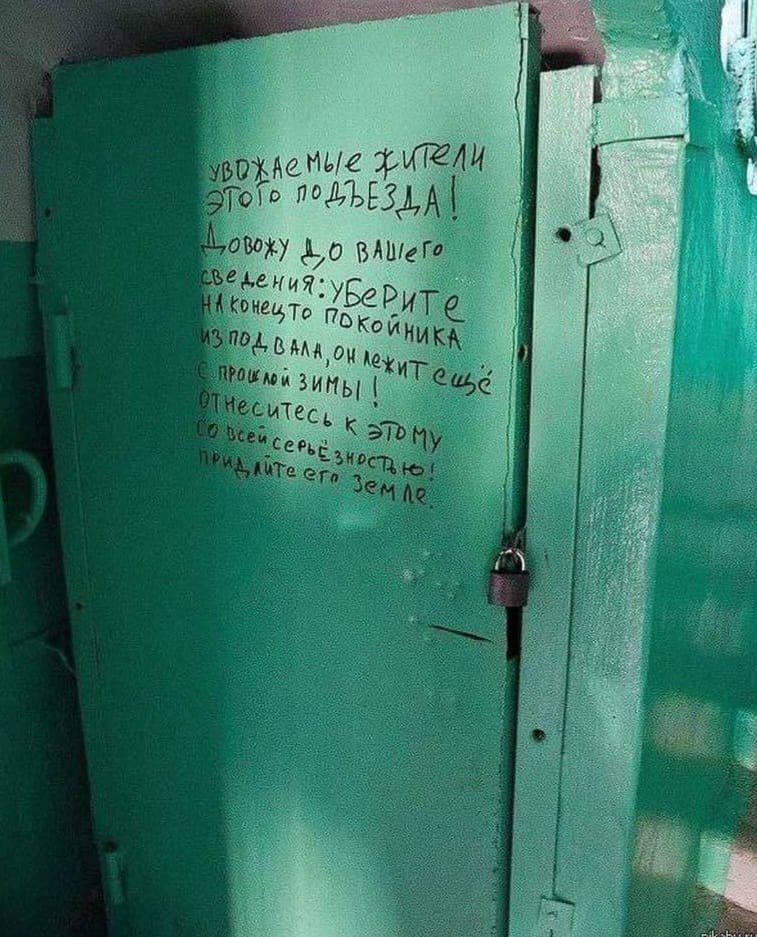 УВОЖАеМЫе ЖИТеЛИ
ЭТОГО ПОДЪЕЗДА!
ДОВОЖУ ДО ВАШеГО
СВеДеНИЯ: УБеРИТе
НАКОНеЦТО ПОКОЙНИКА
ИЗ ПОДВАЛА, ОН ЛеЖИТ еЩЁ
С ПРОШЛОЙ ЗИМЫ!
ОТНеСИТеСЬ К ЭТОМУ
СО ВСеЙ СеРЬЁЗНОСТЬЮ!
ПРИДАЙТе еГО ЗеМЛе.
pikabu.ru